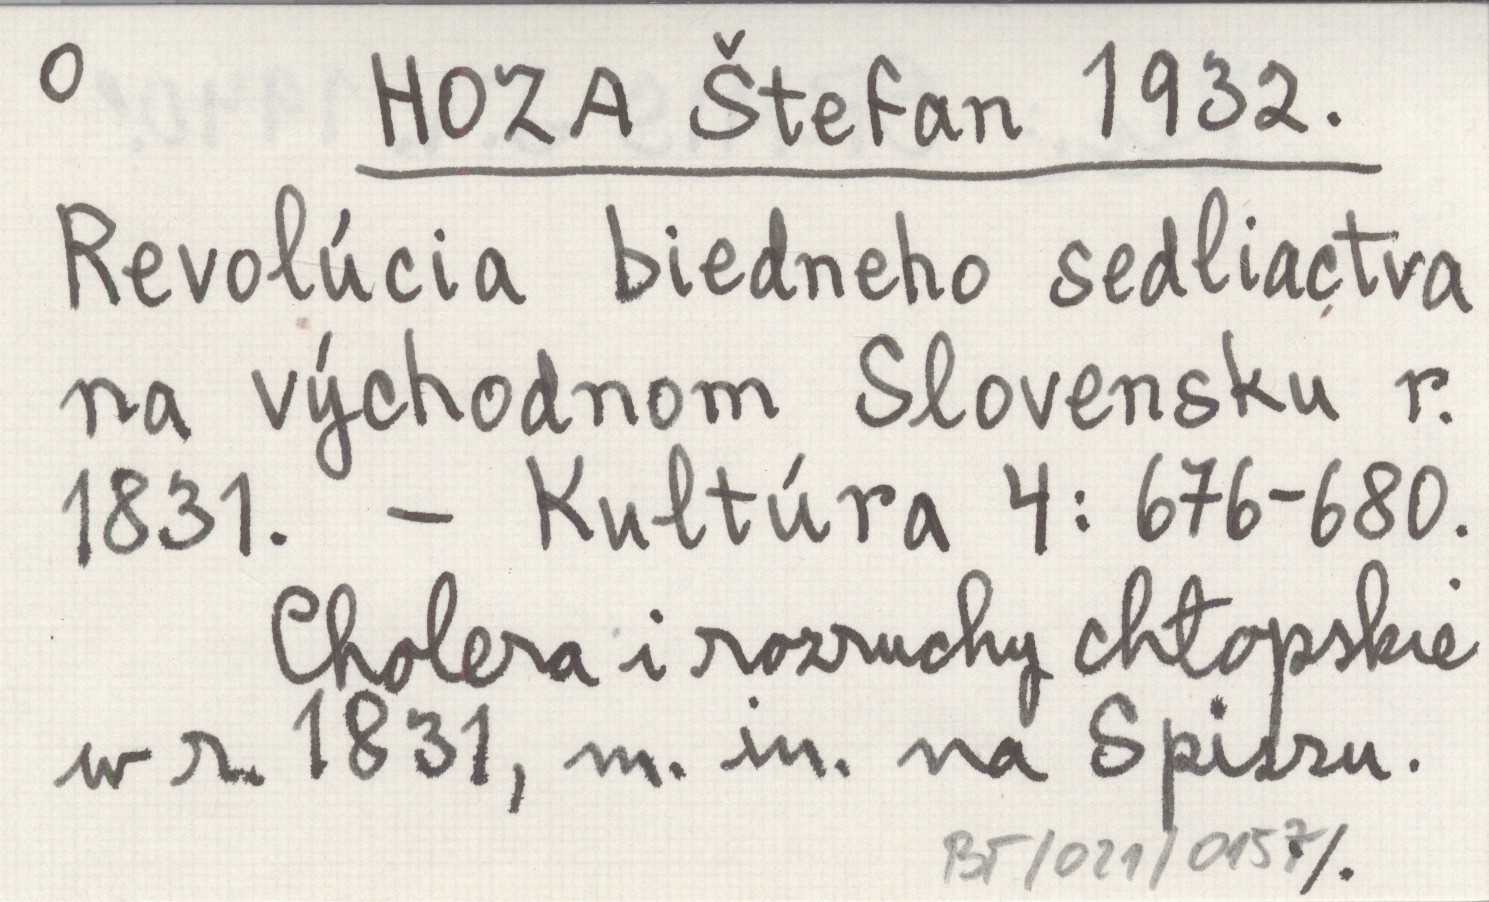 O HOZA Štefan 1932.
Revolúcia biedneho sedliactva
na východnom Slovensku r.
1831. – Kultúra 4: 676-680.
Cholera i rozruchy chłopskie
w r. 1831, m. in. na Spiszu.
BT/021/0157/.